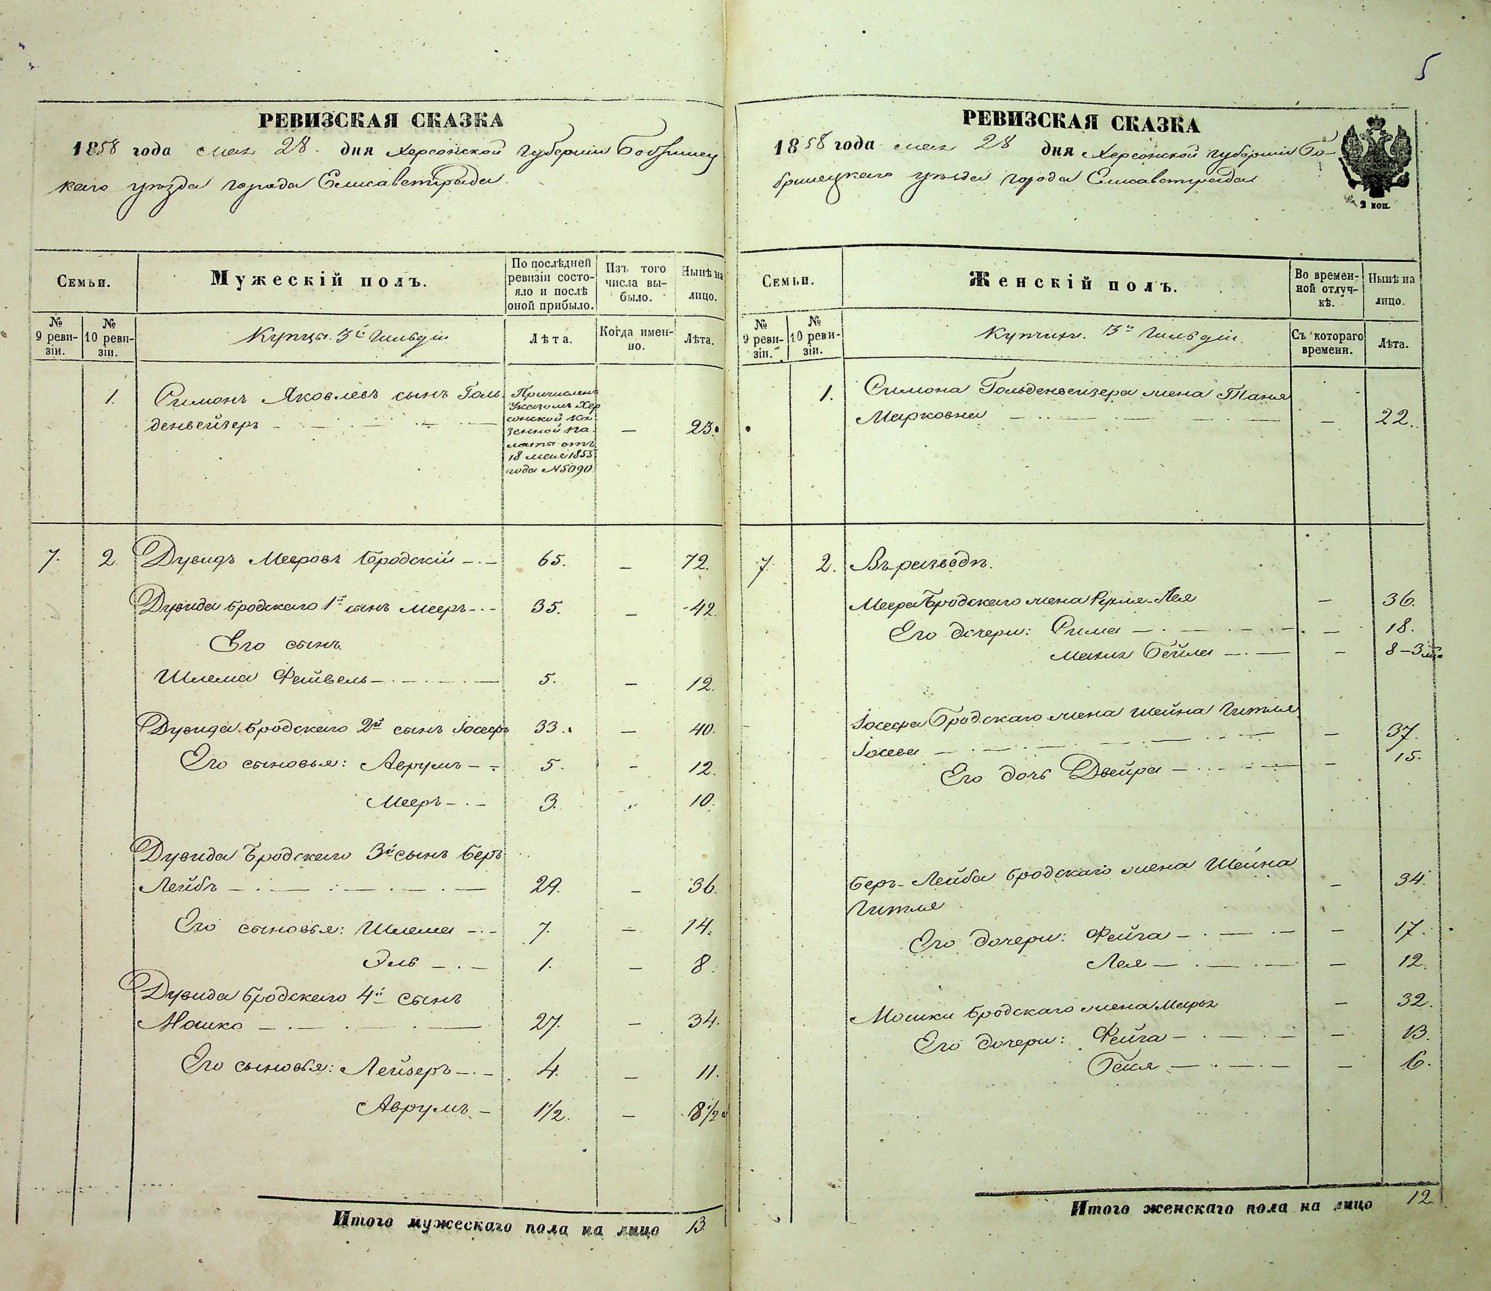 5
РЕВИЗСКАЯ СКАЗКА
1858 года мая 28 дня Херсонской Губернии Бобринец
каго уѣзда города Елисаветграда
Семьи.
Мужескій полъ.
По послѣдней
ревизіи состо-
яло и послѣ
оной прибыло.
Изъ того
числа вы-
было.
Нынѣ на
лицо.
№
9 реви-
зіи.
№
10 реви-
зіи.
Купцы 3й Гильдіи
Лѣта.
Когда имен-
но.
Лѣта.
1.
Симонъ Яковлевъ сынъ Голь-
денвейзеръ
Причисленъ
Указомъ Хер
сонской Ка-
зенной Па-
латы отъ
18 мая 1855
года №5090
—
25.
7. 2 Дувидъ Мееровъ Бродскій 65. — 72.
Дувида Бродскаго 1й сынъ Мееръ 35. — 42.
Его сынъ
Шлема Фейвель 5. — 12.
Дувида Бродскаго 2й сынъ Іосефъ 33. — 40.
Его сыновья: Аврумъ 5. — 12.
Мееръ 3. 10.
Дувида Бродскаго 3й сынъ Беръ
Лейбъ 29. — 36.
Его сыновья: Шлема 7. — 14.
Эль 1. — 8.
Дувида Бродскаго 4й сынъ
Мошко 27. — 34.
Его сыновья: Лейзеръ 4. — 11.
Аврумъ 1½. — 8½
Итого мужескаго пола на лицо 13
РЕВИЗСКАЯ СКАЗКА
1858 года мая 28 дня Херсонской Губерніи Бо-
бринецкаго уѣзда города Елисаветграда
2 коп.
Семьи.
Женскій полъ.
Во времен-
ной отлуч-
кѣ.
Нынѣ на
лицо.
№
9 реви-
зіи.
№
10 реви-
зіи.
Купчихи 3й Гильдіи.
Съ котораго
времени.
Лѣта.
1. Симона Гольденвейзера жена Таня
Марковна — 22.
7 2. Въ разводѣ.
Меера Бродскаго жена Рухля-Лея — 36.
Его дочери: Сима — 18.
Бейла — 8-3
Іосефа Бродскаго жена Шейна Гитля
Іосева — 37.
Его дочь Двейра — 15.
Беръ-Лейба Бродскаго жена Шейна — 34.
Гитля
Его дочери: Фейга — 17.
Лея — 12.
Мошки Бродскаго жена Марья — 32.
Его дочери: Фейга — 13.
Бейля — 6.
Итого женскаго пола на лицо 12